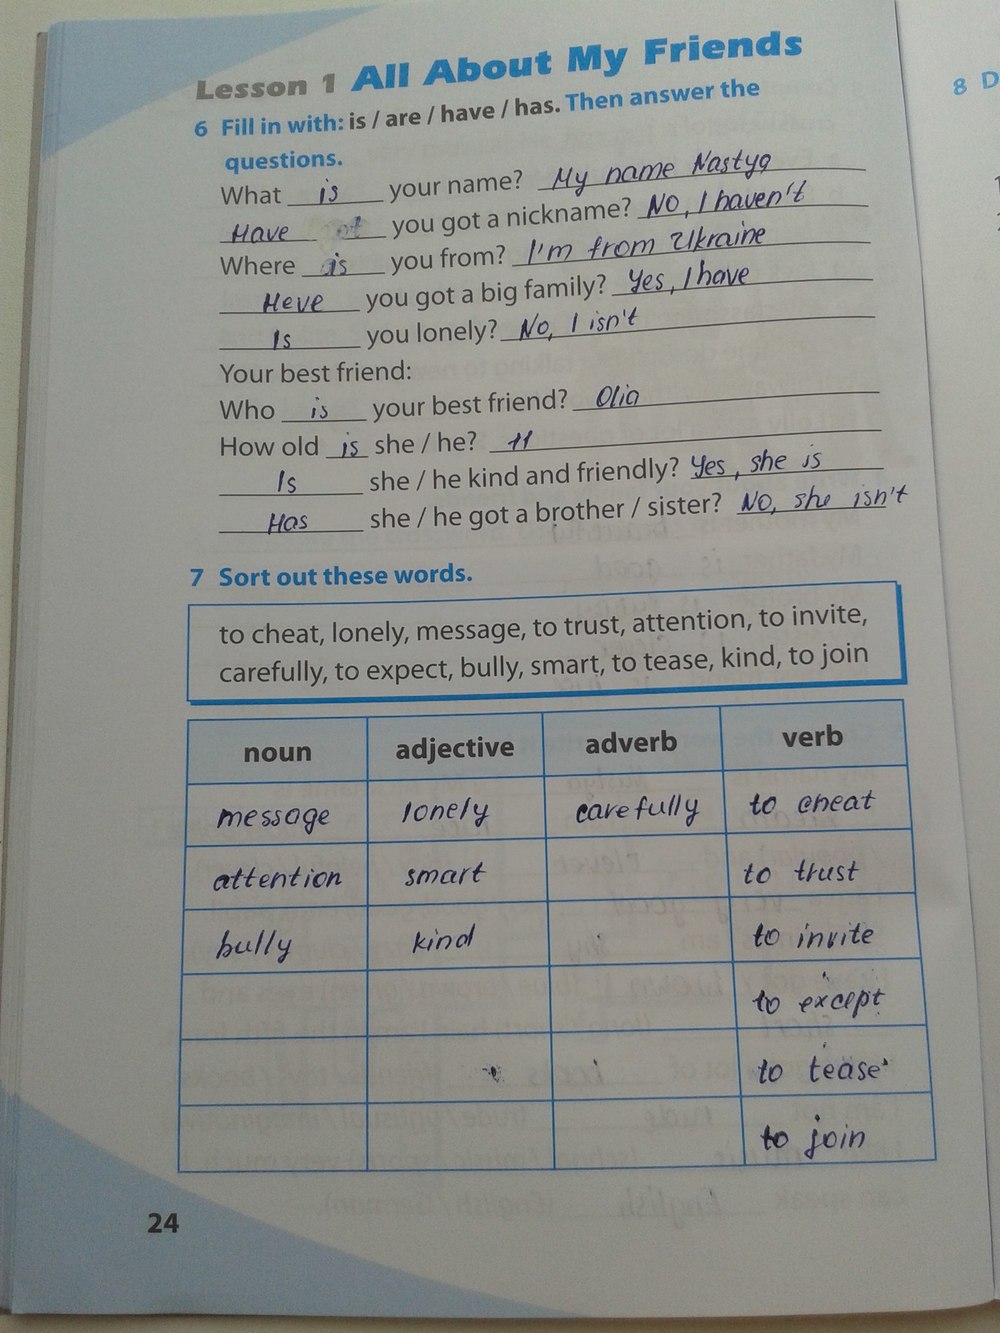 Lesson 1 All About My Friends
8 D
6 Fill in with: is / are / have / has. Then answer the
questions.
What is your name? My name Nastya
Have you got a nickname? No, I haven't
Where is you from? I'm from Ukraine
Heve you got a big family? Yes, I have
Is you lonely? No, I isn't
Your best friend:
Who is your best friend? Olia
How old is she / he? 11
Is she / he kind and friendly? Yes, she is
Has she / he got a brother / sister? No, she isn't
7 Sort out these words.
to cheat, lonely, message, to trust, attention, to invite,
carefully, to expect, bully, smart, to tease, kind, to join
noun adjective adverb verb
message lonely carefully to cheat
attention smart to trust
bully kind to invite
to except
to tease
to join
24